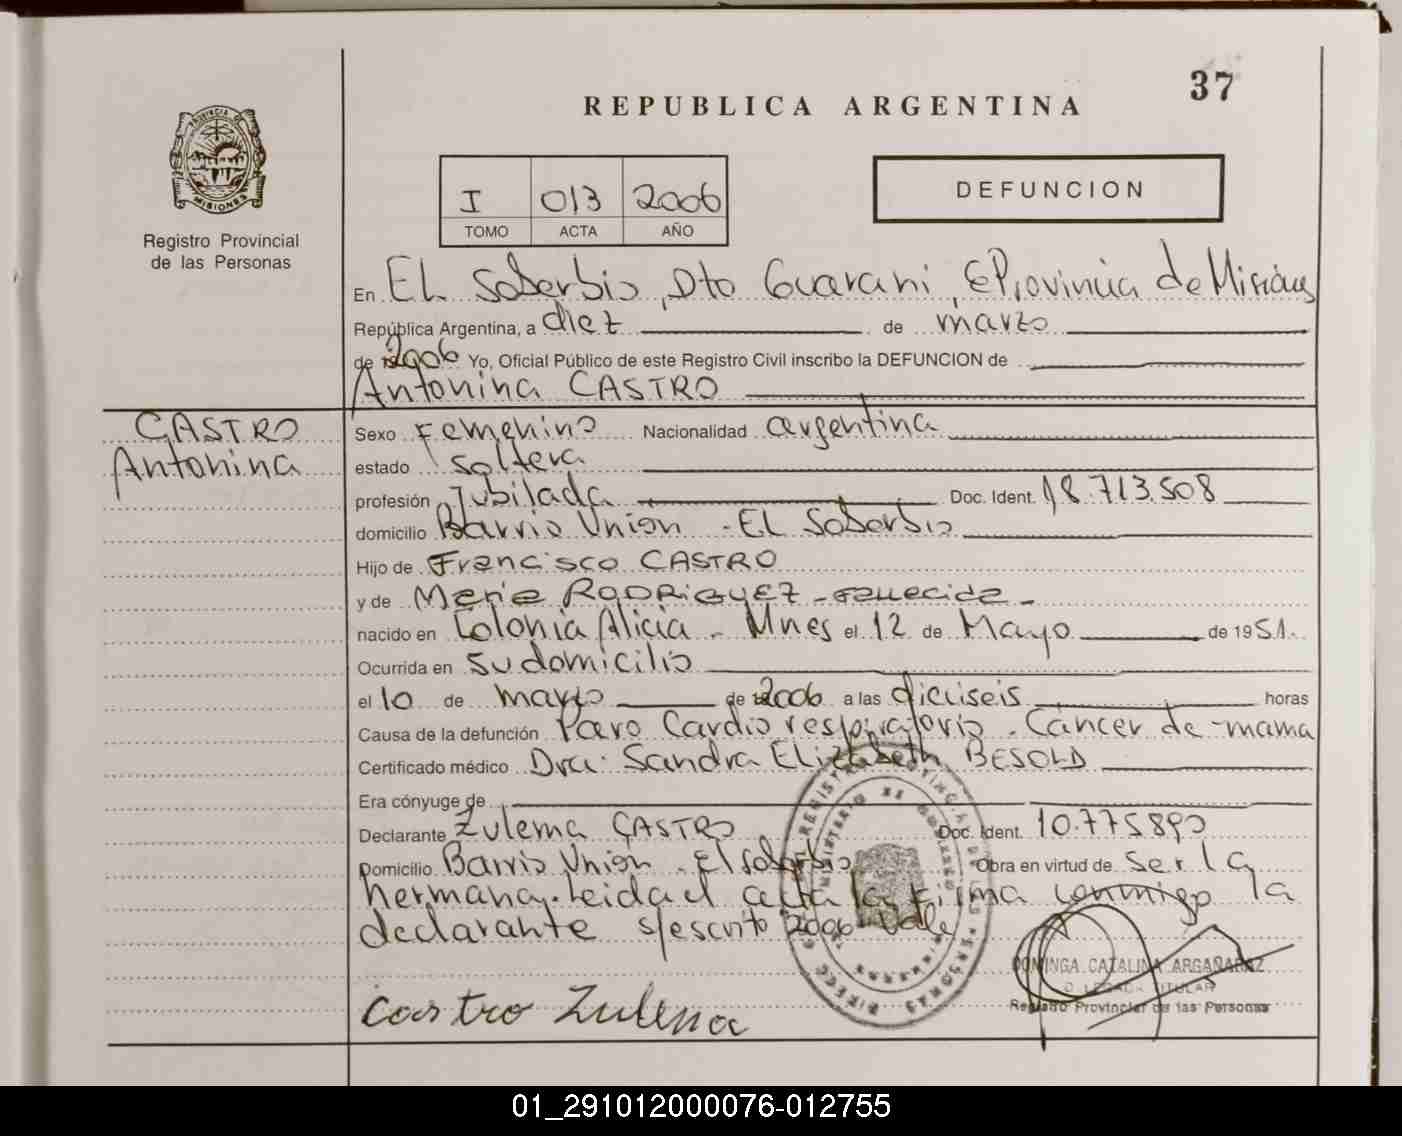 37
REPUBLICA ARGENTINA
PROVINCIA DE
MISIONES
Registro Provincial
de las Personas
I 013 2006
TOMO ACTA AÑO
DEFUNCION
En EL Soberbio, Dto Guarani, Provincia de Misiones
República Argentina, a diez de marzo
de 2006 Yo, Oficial Público de este Registro Civil inscribo la DEFUNCION de
Antonina CASTRO
CASTRO
Antonina
Sexo Femenino Nacionalidad argentina
estado soltera
profesión Jubilada Doc. Ident. 18.713.508
domicilio Barrio Union - EL Soberbio
Hijo de Francisco CASTRO
y de Maria RODRIGUEZ - fallecida -
nacido en Colonia Alicia - Mnes el 12 de Mayo de 1951.
Ocurrida en su domicilio
el 10 de marzo de 2006 a las dieciseis horas
Causa de la defunción Paro Cardio respiratorio - Cáncer de mama
Certificado médico Dra. Sandra Elizabeth BESOLD
Era cónyuge de
Declarante Zulema CASTRO Doc. Ident. 10.775890
Domicilio Barrio Union - El soberbio Obra en virtud de ser la
hermana. Leida el acta la firma conmigo la
declarante s/escrito 2006 Vale
Castro Zulema
DOMINGA CATALINA ARGAÑARAZ
Registro Provincial de las Personas
01_291012000076-012755